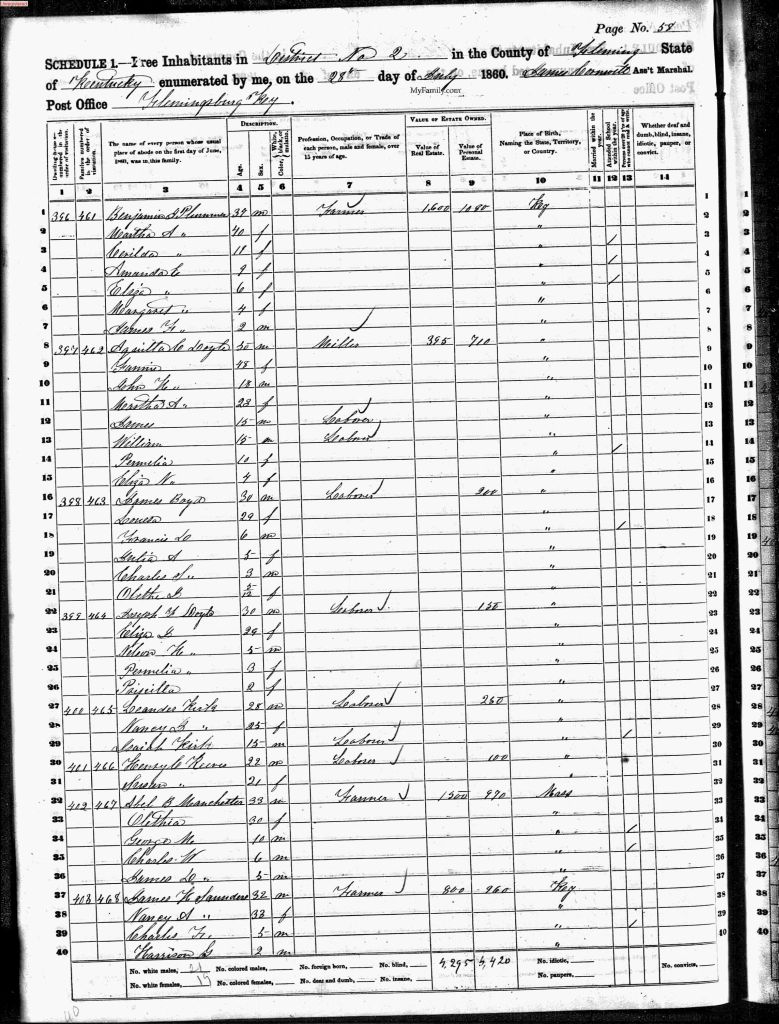 Page No. 58
SCHEDULE 1.—Free Inhabitants in District No 2 in the County of Fleming State
of Kentucky enumerated by me, on the 28th day of July 1860. James Ass't Marshal.
MyFamily.com
Post Office Flemingsburg Key.
Dwelling-houses numbered in the order of visitation.
Families numbered in the order of visitation.
The name of every person whose usual place of abode on the first day of June, 1860, was in this family.
DESCRIPTION.
Age.
Sex.
Color, White, black, or mulatto.
Profession, Occupation, or Trade of each person, male and female, over 15 years of age.
VALUE OF ESTATE OWNED.
Value of Real Estate.
Value of Personal Estate.
Place of Birth, Naming the State, Territory, or Country.
Married within the year.
Attended School within the year.
Whether deaf and dumb, blind, insane, idiotic, pauper, or convict.
1 2 3 4 5 6 7 8 9 10 11 12 13 14
1 396 461 Benjamin Plummer 39 m Farmer 1,600 1080 Key 1
2 Martha A " 40 f " 2
3 " 18 f " / 3
4 Amanda C 9 f " / 4
5 Eliza " 6 f " / 5
6 Margaret " 4 f " 6
7 James F. " 2 m " 7
8 397 462 Aquilla C Doyle 50 m Miller 395 710 " 8
9 Fannie 48 f " 9
10 John H. " 18 m " 10
11 Martha A. " 23 f " 11
12 James 15 m Laborer " 12
13 William 15 m Laborer " 13
14 Permelia 10 f " / 14
15 Eliza N. " 4 f " 15
16 398 463 James Boyd 30 m Laborer 200 " 16
17 29 f " 17
18 Francis D 6 m " / 18
19 Julia A 5 f " 19
20 Charles " 3 m " 20
21 f " 21
22 399 464 Joseph Doyle 30 m Laborer 150 " 22
23 Eliza 29 f " 23
24 Nelson H. " 5 m " 24
25 Permelia " 3 f " 25
26 2 f " 26
27 400 465 Leander Kirk 28 m Laborer 260 " 27
28 Nancy " 25 f " 28
29 Kirk 15 m Laborer " / 29
30 401 466 Henry C Reeves 22 m Laborer 100 " 30
31 Susan " 21 f " 31
32 402 467 Abel B Manchester 33 m Farmer 1500 970 Mass 32
33 30 f " 33
34 George M. 10 m " / 34
35 Charles W 6 m " / 35
36 James D. " 5 m " 36
37 403 468 James H Saunders 32 m Farmer 800 960 Key 37
38 Nancy A " 33 f " 38
39 Charles 5 m " / 39
40 Harrison 2 m " 40
No. white males, 21 No. colored males, No. foreign born, No. blind, 4,295 4,420 No. idiotic, No. convicts,
No. white females, 19 No. colored females, No. deaf and dumb, No. insane, No. paupers,